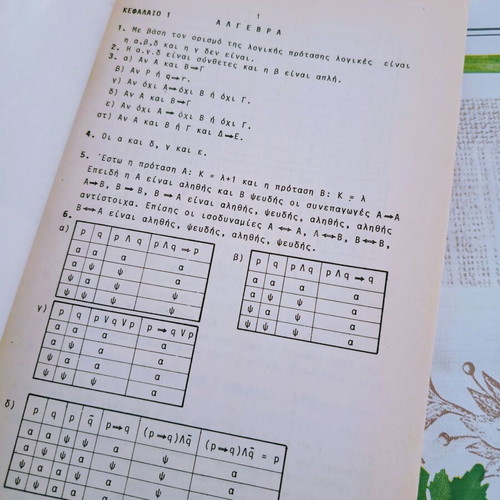 1
ΚΕΦΑΛΑΙΟ 1
ΑΛΓΕΒΡΑ
1. Με βάση τον ορισμό της λογικής πρότασης λογικές είναι
η α,β,δ και η γ δεν είναι.
2. Η α,γ,δ είναι σύνθετες και η β είναι απλή.
3. α) Αν Α και Β⇒Γ
β) Αν p ή q⇒r.
γ) Αν όχι Α⇒όχι Β ή όχι Γ.
δ) Αν Α και Β⇒Γ
ε) Αν όχι Α ⇒ όχι Β ή όχι Γ.
στ) Αν Α και Β ή Γ και Δ⇒Ε.
4. Οι α και δ, γ και ε.
5. Έστω η πρόταση Α: Κ = λ+1 και η πρόταση Β: Κ = λ
Επειδή η Α είναι αληθής και Β ψευδής οι συνεπαγωγές Α⇒Α
Α⇒Β, Β⇒Β, Β⇒Α είναι αληθής, ψευδής, αληθής, αληθής
αντίστοιχα. Επίσης οι ισοδυναμίες Α⇔Α, Α⇔Β, Β⇔Β,
Β⇔Α είναι αληθής, ψευδής, αληθής, ψευδής.
6.
α)
p q p Λ q p Λ q ⇒ p
α α α α
α ψ ψ α
ψ α ψ α
ψ ψ ψ α
β)
p q pΛq pΛq ⇒ q
α α α α
α ψ ψ α
ψ α ψ α
ψ ψ ψ α
γ)
p q p V q V p p ⇒ q V p
α α α α
α ψ α α
ψ α α α
ψ ψ ψ α
δ)
p q p̄ q̄ p⇒q (p⇒q)Λq̄ (p⇒q)Λq̄ = p
α α ψ ψ α ψ α
α ψ ψ α ψ ψ α